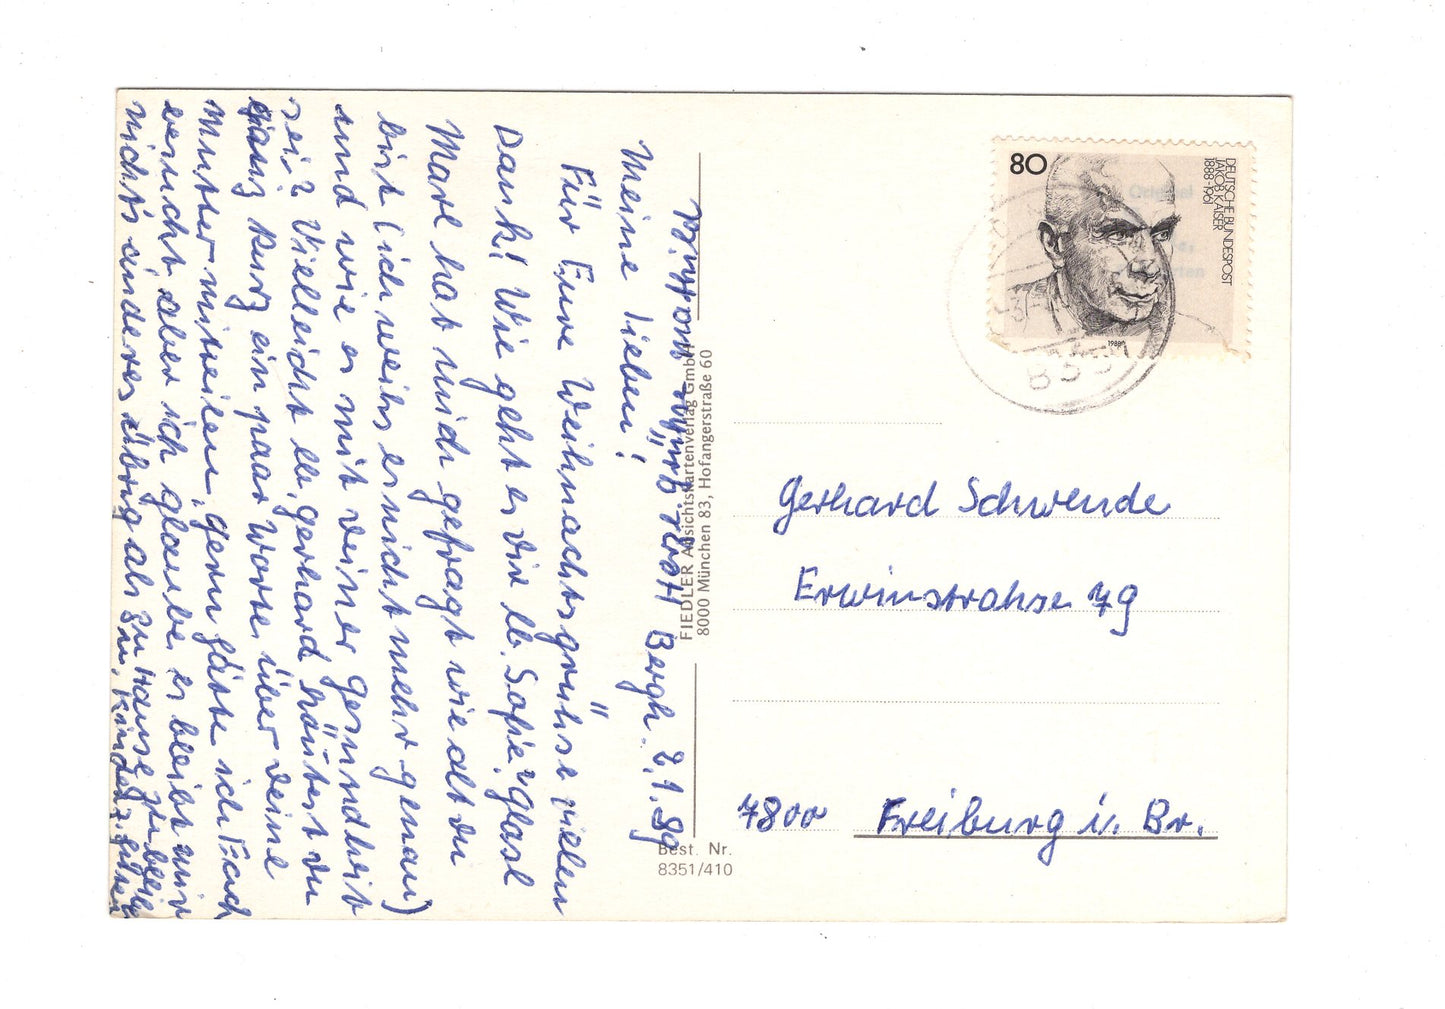 Bergh. 2.1.89
Meine lieben!
Für Eure Weihnachtsgrühse vielen
Dank! Wie geht es dir lb. Sofie? glasl
Marl hat mich gefragt wie alt du
bist (ich weihs es nicht mehr genau)
und wie es mit deiner gesundheit
sei? Vielleicht lb. gerhard könntest du
ganz kurz ein paar Worte über deine
Mutter mitteilen, gern hätte ich Euch
besucht, aber ich glaube es bleibt mir
nichts anderes übrig als zu Hause zu bleib
Herzl. grühse
FIEDLER Ansichtskartenverlag GmbH
8000 München 83, Hofangerstraße 60
Best. Nr.
8351/410
80
DEUTSCHE BUNDESPOST
JAKOB KAISER
1888-1961
1988
gerhard Schwende
Erwinstrahse 79
7800 Freiburg i. Br.